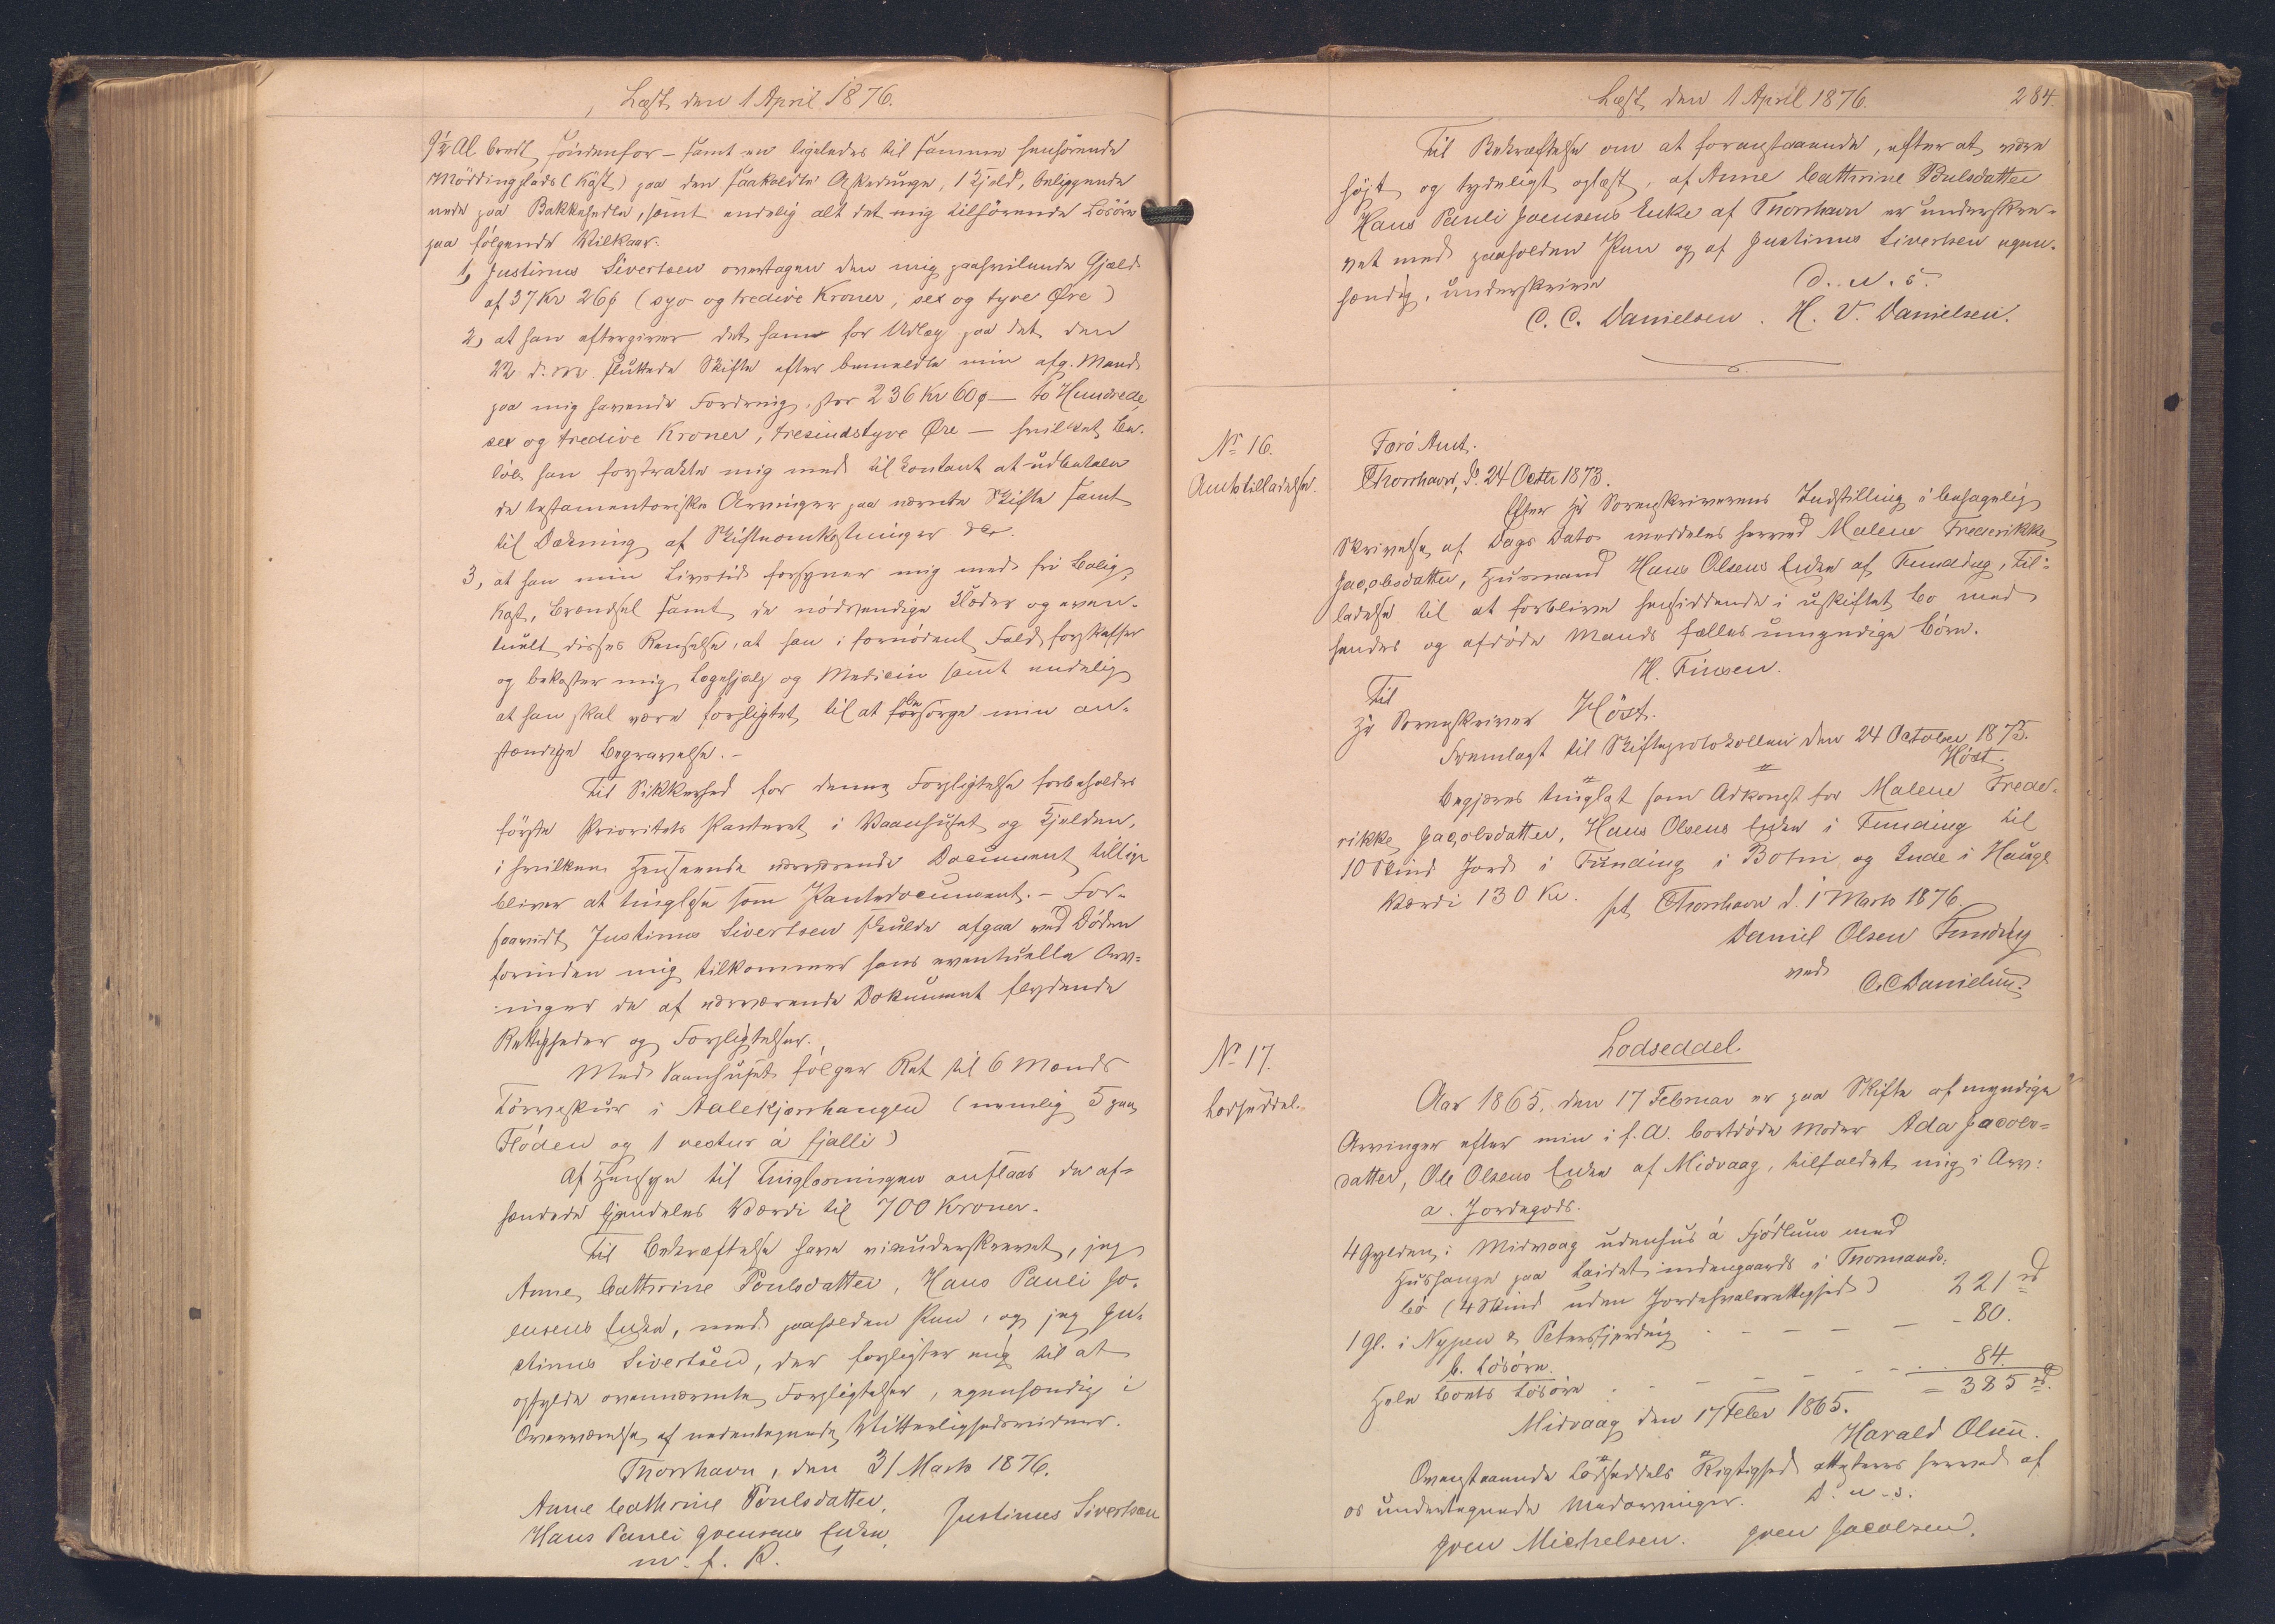 Læst den 1 April 1876.
9½ Al. bredt söndenfor – samt en ligeledes til samme henhörende
Möddingplads (Käst) paa den saakaldte Askedunge, 1 Hjeld, beliggende
nede paa Bakkehella, samt endelig alt det mig tilhörende Lösöre
paa fölgende Vilkaar.
1, Justinus Sivertsen overtager den mig paahvilende Gjæld
af 37 Kr 26 ø (syv og tredive Kroner, sex og tyve Øre)
2, at han eftergiver det ham for Udlæg paa det den
22 d. M. sluttede Skifte efter bemeldte min afg. Mand
paa mig havende Fordring, stor 236 Kr 60 ø – to Hundrede
sex og tredive Kroner, tresindstyve Øre – hvilket Be-
löb han forstrakte mig med til kontant at udbetale
de testamentariske Arvinger paa nævnte Skifte samt
til Dækning af Skifteomkostninger &c.
3, at han min Livstid forsyner mig med fri Bolig,
Kost, Brændsel samt de nödvendige Klæder og even-
tuelt disses Renselse, at han i fornödent Fald forskaffer
og bekoster mig Lægehjælp og Medicin samt endelig
at han skal være forpligtet til at besörge min an-
stændige Begravelse. –
Til Sikkerhed for denne Forpligtelse forbeholdes
förste Prioritets Panteret i Vaanhuset og Hjelden,
i hvilken Henseende nærværende Document tillige
bliver at tinglæse som Pantedocument. – For-
saavidt Justinus Sivertsen skulde afgaa ved Döden
forinden mig tilkommer hans eventuelle Arv-
inger de af nærværende Dokument flydende
Rettigheder og Forpligtelser.
Med Vaanhuset fölger Ret til 6 Mands
Törveskur i Aalekjærrhaugen (nemlig 5 paa
Flöden og 1 vestur á fjalli)
Af Hensyn til Tinglæsningen anslaas de af-
hændede Ejendeles Værdi til 700 Kroner.
Til Bekræftelse have vi underskrevet, jeg
Anne Cathrine Poulsdatter, Hans Pauli Jo-
ensens Enke, med paaholden Pen, og jeg Ju-
stinus Sivertsen, der forpligter mig til at
opfylde ovennævnte Forpligtelser, egenhændig i
Overværelse af nedentegnede Vitterlighedsvidner.
Thorshavn, den 31 Marts 1876.
Anne Cathrine Poulsdatter,
Hans Pauli Joensens Enke, Justinus Sivertsen
m. f. P.
Læst den 1 April 1876. 284.
Til Bekræftelse om at foranstaaende, efter at være
höjt og tydeligt oplæst, af Anne Cathrine Poulsdatter
Hans Pauli Joensens Enke af Thorshavn er underskre-
vet med paaholden Pen og af Justinus Sivertsen egen-
hændig, underskrive D. u. s.
C. C. Danielsen. H. V. Danielsen.
No 16.
Amtstilladelse.
Færö Amt.
Thorshavn, d. 24 Octbr 1873.
Efter Hr Sorenskriverens Indstilling i behagelig
Skrivelse af Dags Dato meddeles herved Malene Frederikke
Jacobsdatter, Husmand Hans Olsens Enke af Funding, Til-
ladelse til at forblive hensiddende i uskiftet Bo med
hendes og afdöde Mands fælles umyndige Börn.
H. Finsen.
Til
Hr Sorenskriver Höst.
Fremlagt til Skifteprotokollen den 24 October 1873.
Höst.
Begjæres tinglæst som Adkomst for Malene Frede-
rikke Jacobsdatter, Hans Olsens Enke i Funding til
10 Skind Jord i Funding i Botni og Inde i Hauge
Værdi 130 Kr. pt Thorshavn d. 1 Marts 1876.
Daniel Olsen Funding
ved C. C. Danielsen.
No 17.
Lodseddel.
Lodseddel.
Aar 1865, den 17 Februar er paa Skifte af myndige
Arvinger efter min i f. A. bortdöde Moder Ada Jacobs-
datter, Ole Olsens Enke af Midvaag, tilfaldet mig i Arv:
a. Jordegods.
4 Gylden i Midvaag udenhus á Fjödlum med
Hushauge paa Laidet indengaards i Thormands-
bö (4 Skind uden Jordehvalsrettighed) 221 rd
1 Gl. i Nypen & Petersfjerding – – – – 80.
b. Lösöre.
Hele Boets Lösöre – – – – 84.
= 385 rd.
Midvaag den 17 Febr 1865.
Harald Olsen.
Ovenstaaende Lodseddels Rigtighed attesteres herved af
os undertegnede Medarvinger. D. u. s.
Joen Michelsen. Joen Jacobsen.